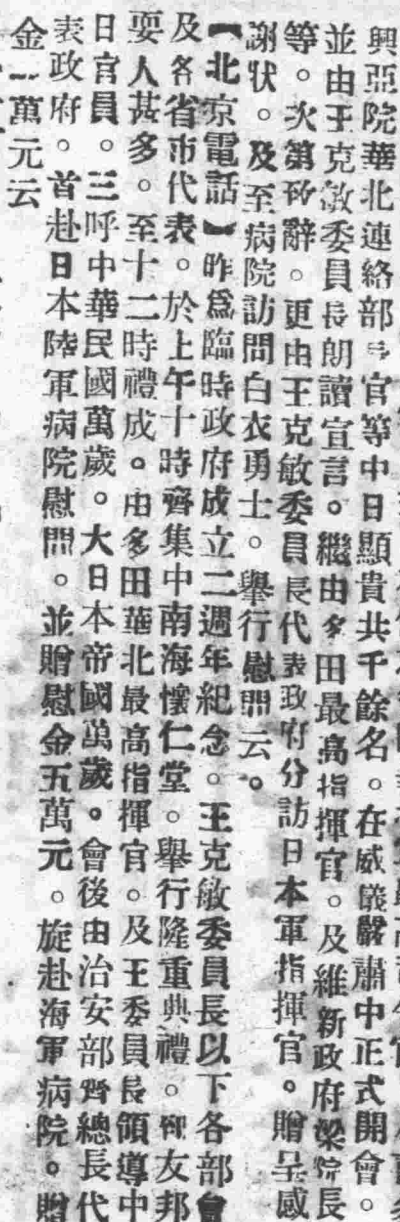 興亞院華北連絡部長官等中日顯貴共千餘名。在威儀嚴肅中正式開會。
並由王克敏委員長朗讀宣言。繼由多田最高指揮官。及維新政府梁院長
等。次第致辭。更由王克敏委員長代表政府分訪日本軍指揮官。贈呈感
謝狀。及至病院訪問白衣勇士。舉行慰問云。
【北京電話】昨爲臨時政府成立二週年紀念。王克敏委員長以下各部會
及各省市代表。於上午十時齊集中南海懷仁堂。舉行隆重典禮。友邦
要人甚多。至十二時禮成。由多田華北最高指揮官。及王委員長領導中
日官員。三呼中華民國萬歲。大日本帝國萬歲。會後由治安部齊總長代
表政府。首赴日本陸軍病院慰問。並贈慰金五萬元。旋赴海軍病院。贈
金一萬元云